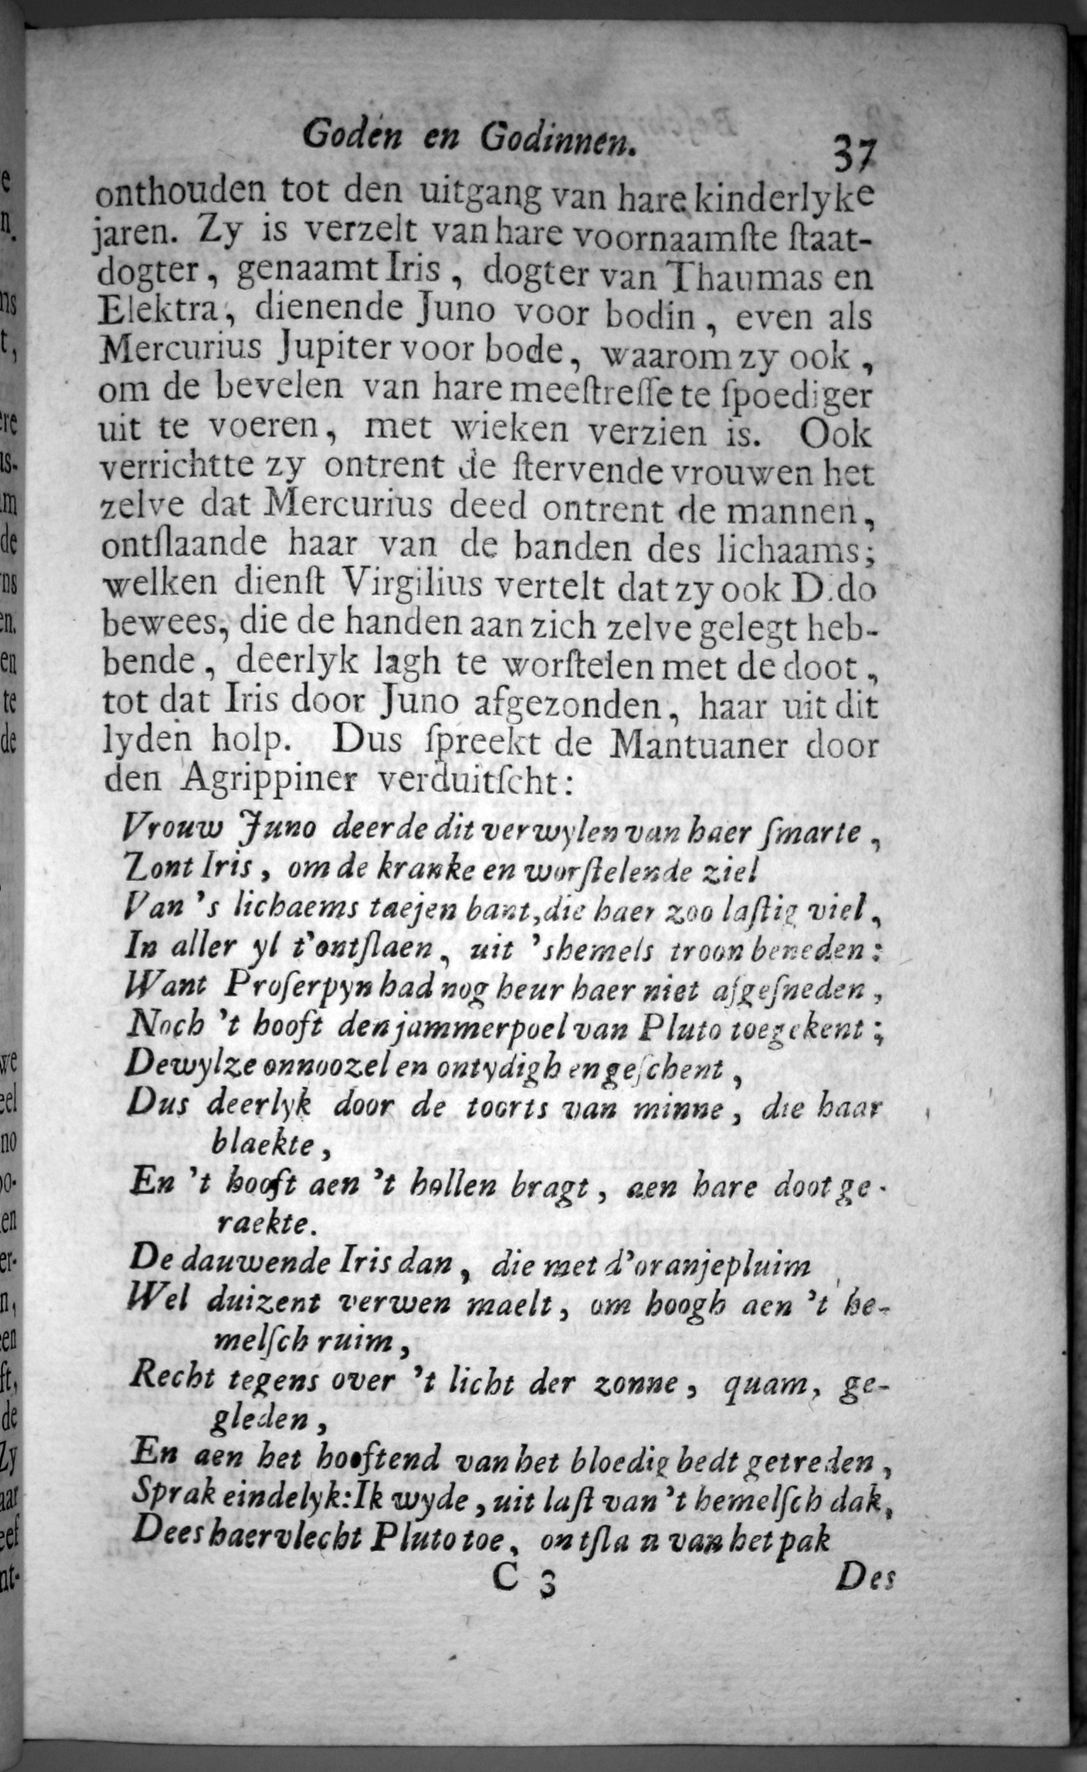 Goden en Godinnen. 37
onthouden tot den uitgang van hare kinderlyke
jaren. Zy is verzelt van hare voornaamſte ſtaat-
dogter, genaamt Iris, dogter van Thaumas en
Elektra, dienende Juno voor bodin, even als
Mercurius Jupiter voor bode, waarom zy ook,
om de bevelen van hare meeſtreſſe te ſpoediger
uit te voeren, met wieken verzien is. Ook
verrichtte zy ontrent de ſtervende vrouwen het
zelve dat Mercurius deed ontrent de mannen,
ontſlaande haar van de banden des lichaams;
welken dienſt Virgilius vertelt dat zy ook D.do
bewees, die de handen aan zich zelve gelegt heb-
bende, deerlyk lagh te worſtelen met de doot,
tot dat Iris door Juno afgezonden, haar uit dit
lyden holp. Dus ſpreekt de Mantuaner door
den Agrippiner verduitſcht:
Vrouw Juno deerde dit verwylen van haer ſmarte,
Zont Iris, om de kranke en worſtelende ziel
Van 's lichaems taejen bant, die haer zoo laſtig viel,
In aller yl t'ontſlaen, uit 's hemels troon beneden:
Want Proſerpyn had nog heur haer niet afgeſneden,
Noch 't hooft den jammerpoel van Pluto toegekent;
Dewylze onnoozel en ontydigh en geſchent,
Dus deerlyk door de toorts van minne, die haar
blaekte,
En 't hooft aen 't hollen bragt, aen hare doot ge-
raekte.
De dauwende Iris dan, die met d'oranjepluim
Wel duizent verwen maelt, om hoogh aen 't he-
melſch ruim,
Recht tegens over 't licht der zonne, quam, ge-
gleden,
En aen het hooftend van het bloedig bedt getreden,
Sprak eindelyk: Ik wyde, uit laſt van 't hemelſch dak,
Dees haervlecht Pluto toe, ontſla u van het pak
C 3 Des